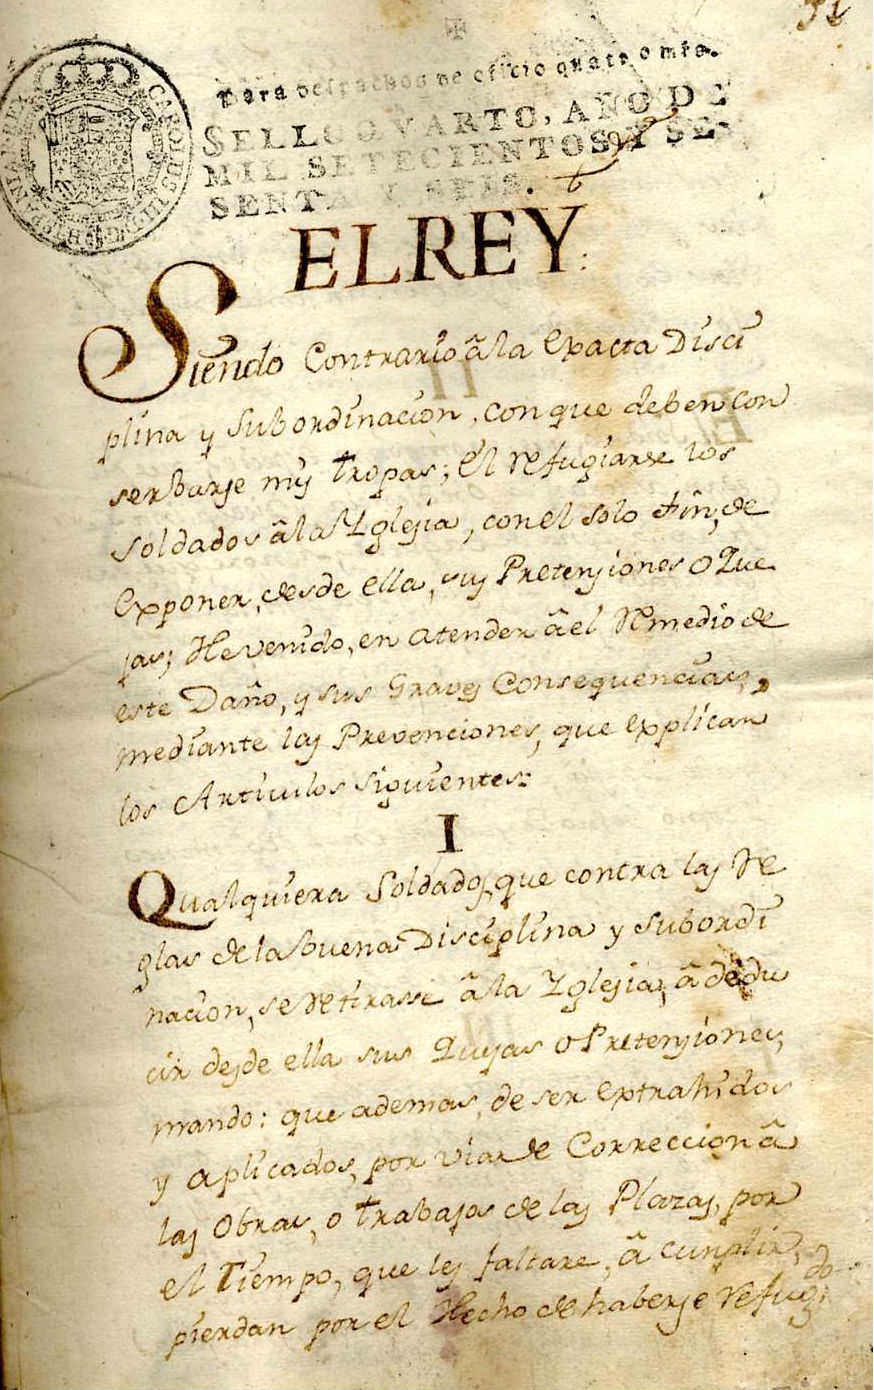 Para despachos de oficio quatro mrs.
SELLO QVARTO, AÑO DE
MIL SETECIENTOS Y SES
SENTA Y SEIS.
CAROLUS III D G HISPANIAR REX
EL REY:
Siendo Contrario â la Expacta Disci
plina y Subordinacion, con que deben con
serbarse mis tropas; El refugiarse los
Soldados â la Yglesia, con el solo fin, de
Exponer, desde ella, sus Pretensiones o Que
jas; He venido, en atender â el Remedio de
este Daño, y sus Graves Consequencias,
mediante las Prevenciones, que explican
los Articulos siguientes:
I
Qualquiera Soldado, que contra las Re
glas de la buena Disciplina y subordi
nacion, se retirasse â la Yglesia, â dedu
cir desde ella sus Quejas o Pretensiones,
mando: que ademas, de ser extrahidos
y aplicados, por via de Correccion â
las Obras, o trabajos de las Plazas, por
el Tiempo, que les faltare, â cunplir,
pierdan por el Hecho de haberse refugi
do